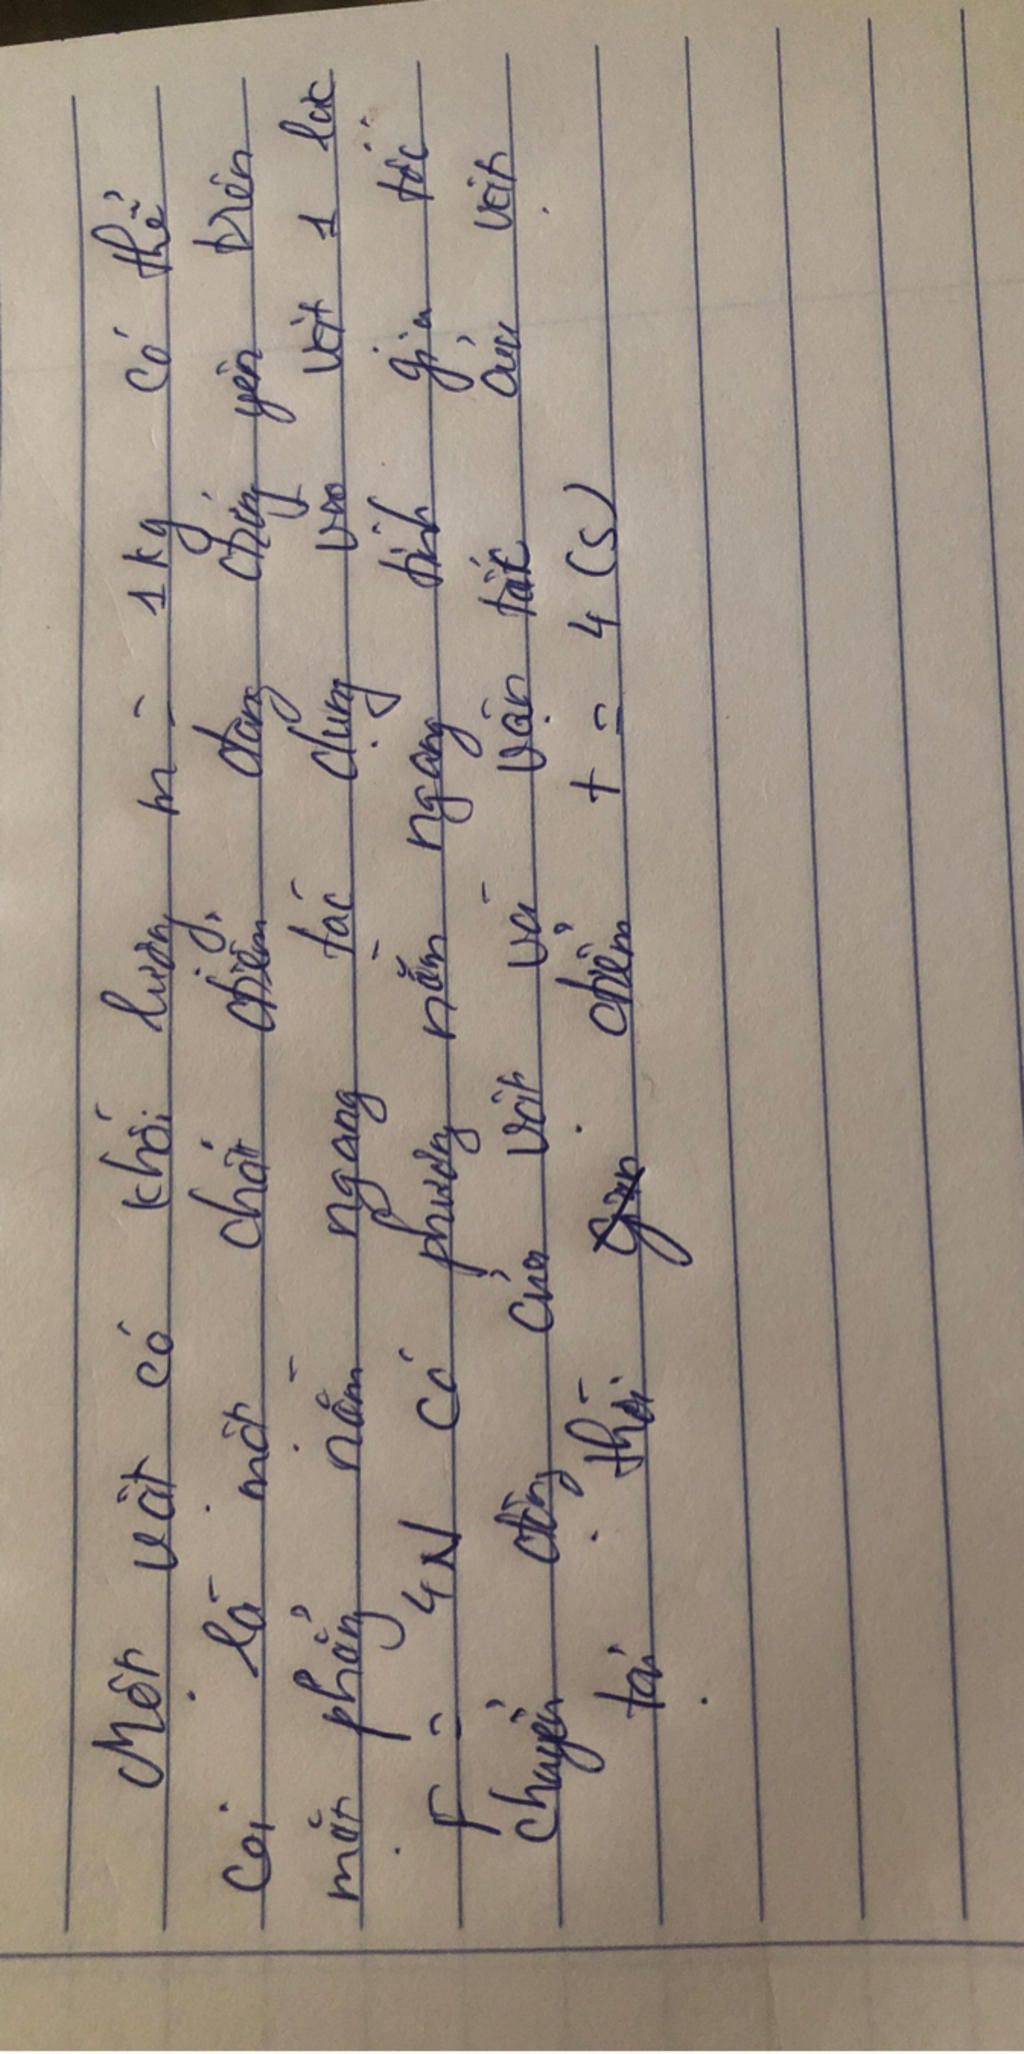 Một vật có khối lượng m = 1kg có thể
coi là một chất điểm đang đứng yên trên
mặt phẳng nằm ngang tác dụng vào vật 1 lực
F = 4N có phương nằm ngang tính gia tốc
chuyển động của vật và vận tốc của vật
tại thời điểm t = 4 (s)